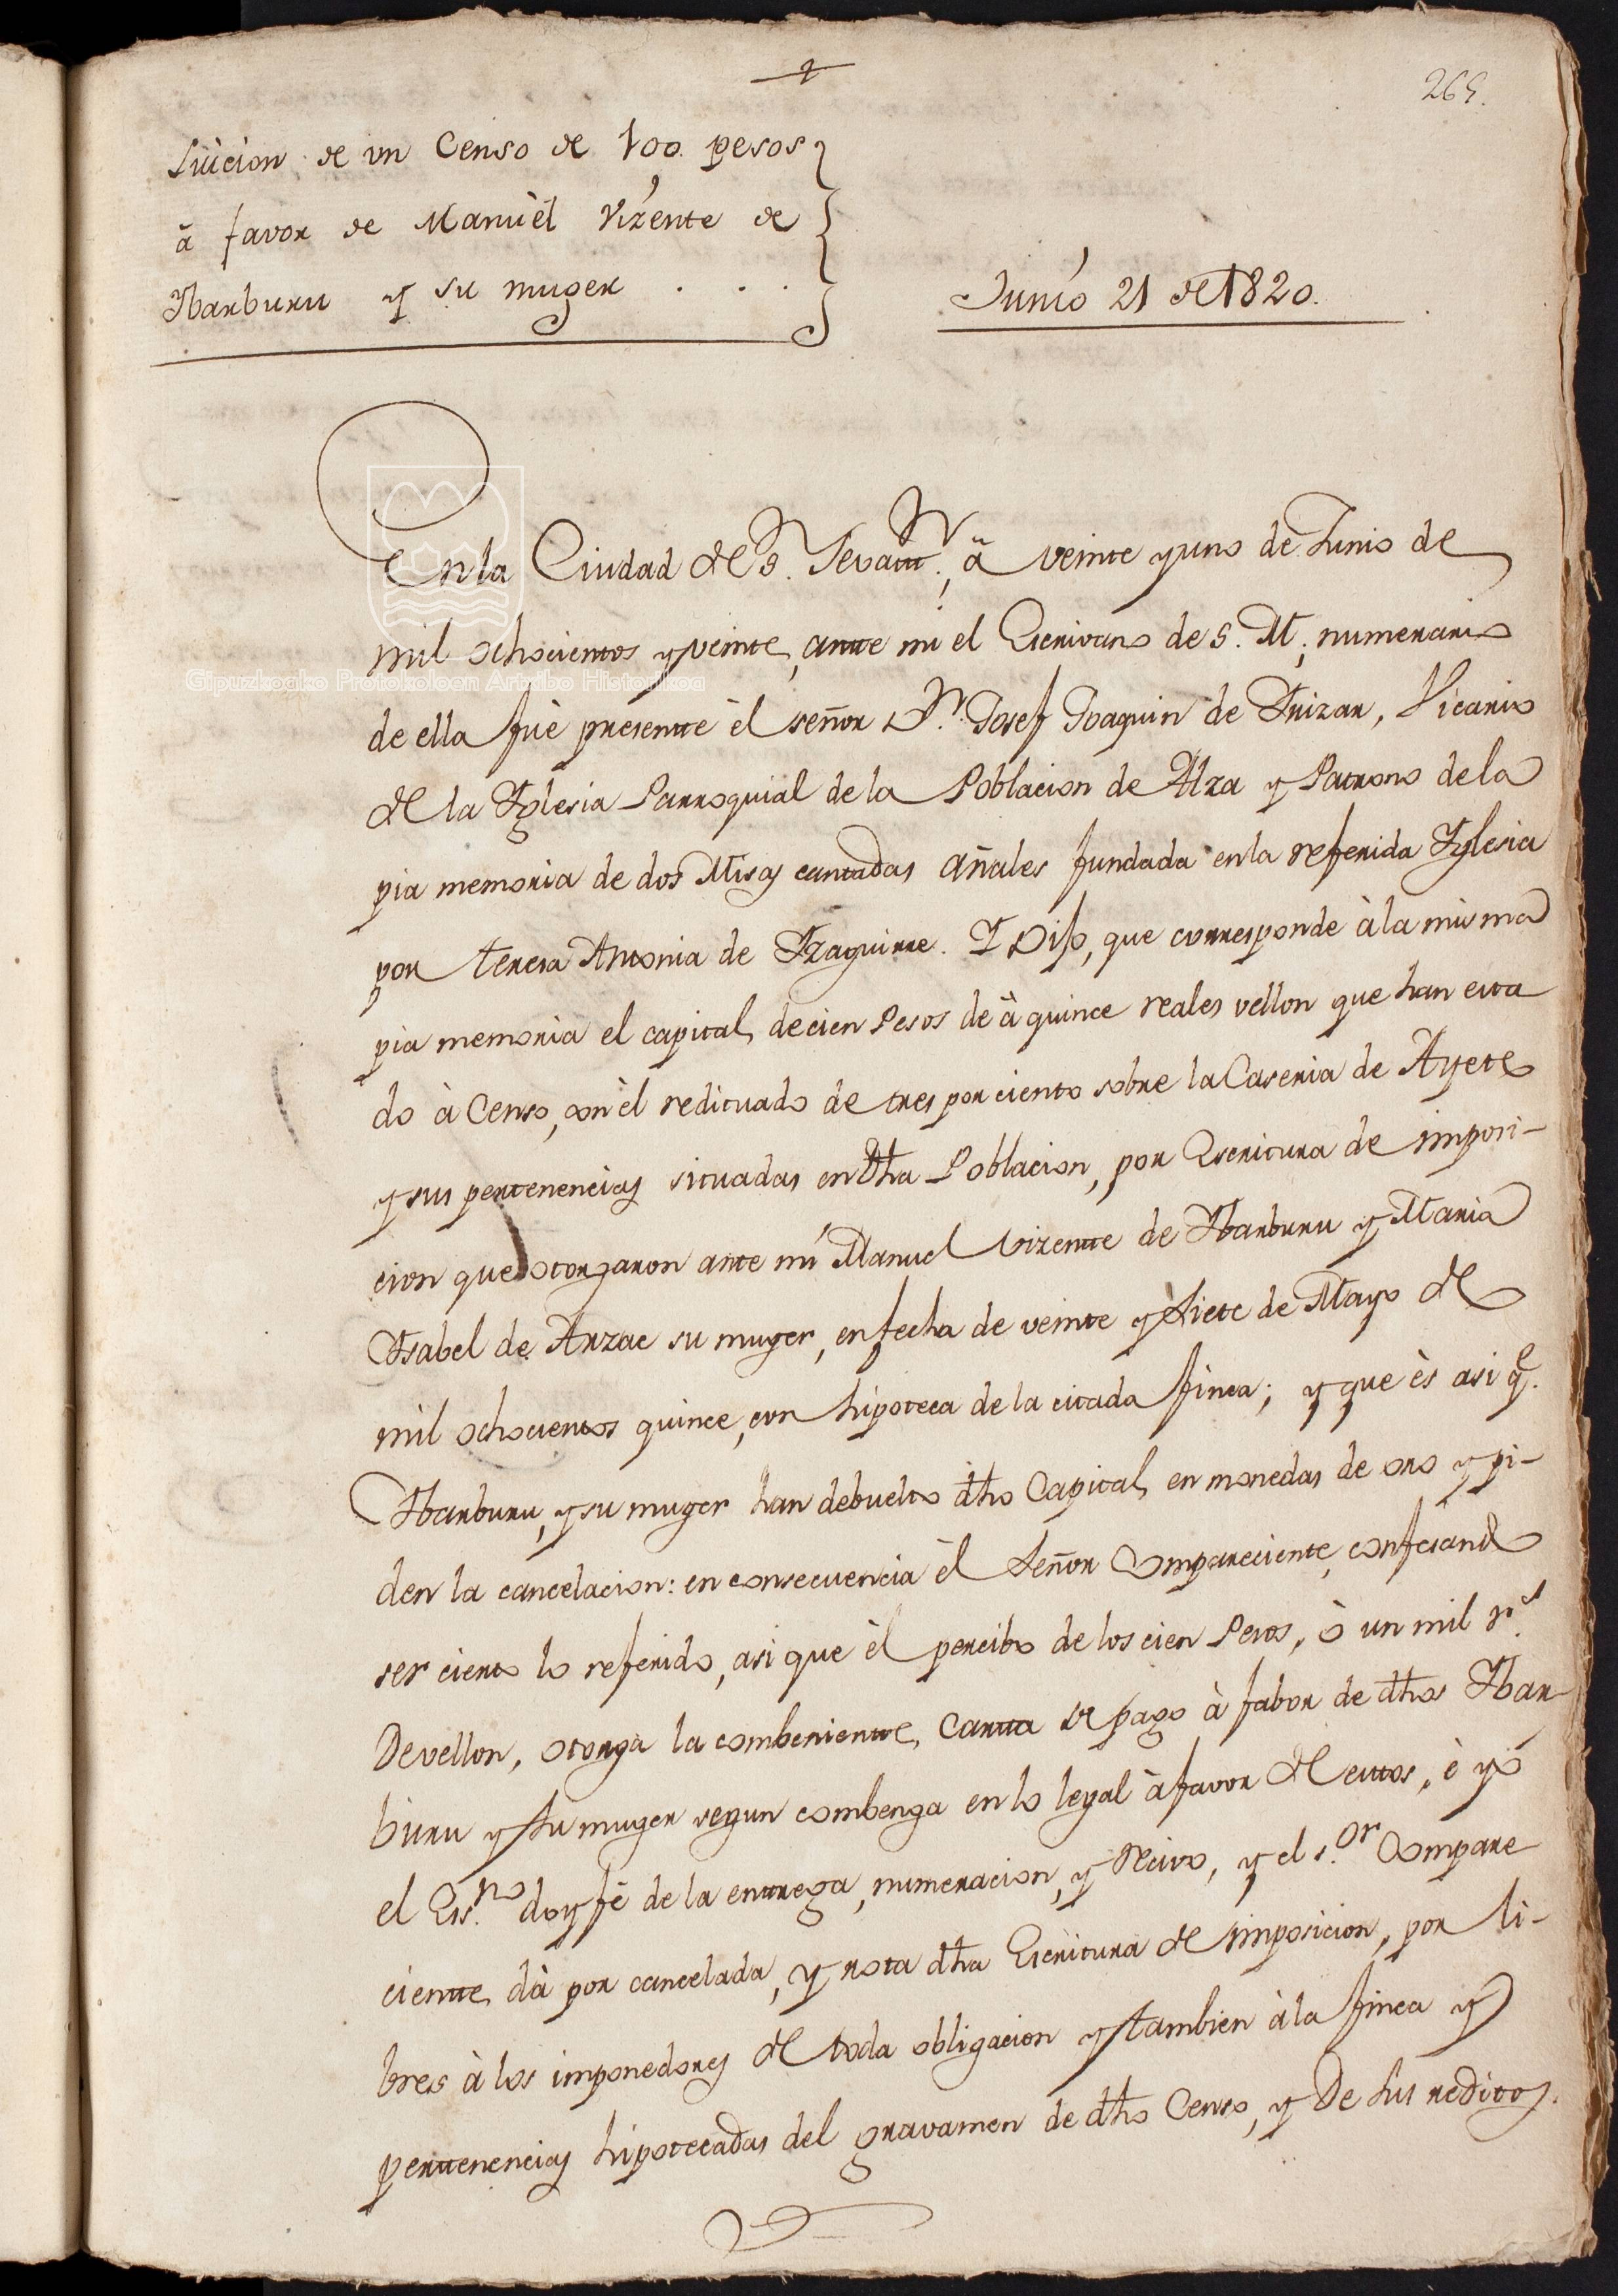 265.
Luicion de vn Censo de 100. pesos
ã favor de Manuèl Vizente de
Ybarburu y su muger . . .
Junio 21 de 1820.
En la Ciudad de Sn. Sevastn., ã veinte y uno de Junio de
mil ochocientos y veinte, ante mi el Escrivano de S. M., numerario
de ella fuè presente èl señor Dn. Josef Joaquin de Yrizar, Vicario
de la Yglesia Parroquial de la Poblacion de Alza y Patrono de la
pia memoria de dos Misas cantadas añales fundada en la referida Yglesia
por teresa Antonia de Yzaguirre. Y Dijo, que corresponde à la misma
pia memoria el capital de cien Pesos de à quince reales vellon que han esta
do à Censo, con èl redituado de tres por ciento sobre la Caseria de Ayete
y sus pertenencias situadas en dha Poblacion, por Escritura de imposi-
cion que otorgaron ante mi Manuel Vizente de Ybarburu y Maria
Ysabel de Arzac su muger, en fecha de veinte y siete de Mayo de
mil ochocientos quince, con hipoteca de la citada finca; y que ès asi qe.
Ybarburu, y su muger han debuelto dho Capital en monedas de oro y pi-
den la cancelacion: en consecuencia èl Señor Compareciente, confesando
ser cierto lo referido, asi que èl percibo de los cien Pesos, ò un mil rs.
De vellon, otorga la combeniente, Carta de pago à fabor de dhos Ybar-
buru y su muger segun combenga en lo legal à favor de estos, è yo
el Esno. doy fè de la entrega, numeracion, y Recivo, y el s.or Compare-
ciente, dà por cancelada, y rota dha Escritura de imposicion, por li-
bres à los imponedores de toda obligacion y tambien à la finca y
pertenencias hipotecadas del gravamen de dho Censo, y De sus reditos.
Gipuzkoako Protokoloen Artxibo Historikoa